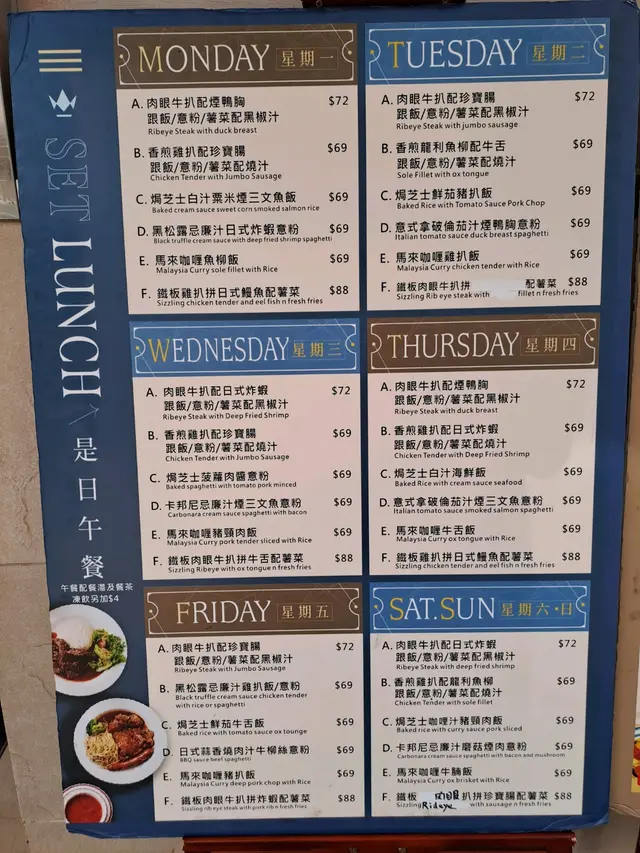 SET LUNCH
是日午餐
午餐配餐湯及餐茶
凍飲另加$4
MONDAY 星期一
A. 肉眼牛扒配煙鴨胸 $72
跟飯/意粉/薯菜配黑椒汁
Ribeye Steak with duck breast
B. 香煎雞扒配珍寶腸 $69
跟飯/意粉/薯菜配燒汁
Chicken Tender with Jumbo Sausage
C. 焗芝士白汁粟米煙三文魚飯 $69
Baked cream sauce sweet corn smoked salmon rice
D. 黑松露忌廉汁日式炸蝦意粉 $69
Black truffle cream sauce with deep fried shrimp spaghetti
E. 馬來咖喱魚柳飯 $69
Malaysia Curry sole fillet with Rice
F. 鐵板雞扒拼日式鰻魚配薯菜 $88
Sizzling chicken tender and eel fish n fresh fries
TUESDAY 星期二
A. 肉眼牛扒配珍寶腸 $72
跟飯/意粉/薯菜配黑椒汁
Ribeye Steak with jumbo sausage
B. 香煎龍利魚柳配牛舌 $69
跟飯/意粉/薯菜配燒汁
Sole Fillet with ox tongue
C. 焗芝士鮮茄豬扒飯 $69
Baked Rice with Tomato Sauce Pork Chop
D. 意式拿破倫茄汁煙鴨胸意粉 $69
Italian tomato sauce duck breast spaghetti
E. 馬來咖喱雞扒飯 $69
Malaysia Curry chicken tender with Rice
F. 鐵板肉眼牛扒拼 配薯菜 $88
Sizzling Rib eye steak with fillet n fresh fries
WEDNESDAY 星期三
A. 肉眼牛扒配日式炸蝦 $72
跟飯/意粉/薯菜配黑椒汁
Ribeye Steak with Deep Fried Shrimp
B. 香煎雞扒配珍寶腸 $69
跟飯/意粉/薯菜配燒汁
Chicken Tender with Jumbo Sausage
C. 焗芝士菠蘿肉醬意粉 $69
Baked spaghetti with tomato pork minced
D. 卡邦尼忌廉汁煙三文魚意粉 $69
Carbonara cream sauce spaghetti with bacon
E. 馬來咖喱豬頸肉飯 $69
Malaysia Curry pork tender sliced with Rice
F. 鐵板肉眼牛扒拼牛舌配薯菜 $88
Sizzling Ribeye with ox tongue n fresh fries
THURSDAY 星期四
A. 肉眼牛扒配煙鴨胸 $72
跟飯/意粉/薯菜配黑椒汁
Ribeye Steak with duck breast
B. 香煎雞扒配日式炸蝦 $69
跟飯/意粉/薯菜配燒汁
Chicken Tender with Deep Fried Shrimp
C. 焗芝士白汁海鮮飯 $69
Baked Rice with cream sauce seafood
D. 意式拿破倫茄汁煙三文魚意粉 $69
Italian tomato sauce smoked salmon spaghetti
E. 馬來咖喱牛舌飯 $69
Malaysia Curry ox tongue with Rice
F. 鐵板雞扒拼日式鰻魚配薯菜 $88
Sizzling chicken tender and eel fish n fresh fries
FRIDAY 星期五
A. 肉眼牛扒配珍寶腸 $72
跟飯/意粉/薯菜配黑椒汁
Ribeye Steak with Jumbo Sausage
B. 黑松露忌廉汁雞扒飯/意粉 $69
Black truffle cream sauce chicken tender
with rice or spaghetti
C. 焗芝士鮮茄牛舌飯 $69
Baked rice with tomato sauce ox tounge
D. 日式蒜香燒肉汁牛柳絲意粉 $69
BBQ sauce beef spaghetti
E. 馬來咖喱豬扒飯 $69
Malaysia Curry deep pork chop with Rice
F. 鐵板肉眼牛扒拼炸蝦配薯菜 $88
Sizzling rib eye steak with pork rib n fresh fries
SAT.SUN 星期六・日
A. 肉眼牛扒配日式炸蝦 $72
跟飯/意粉/薯菜配黑椒汁
Ribeye Steak with deep fried shrimp
B. 香煎雞扒配龍利魚柳 $69
跟飯/意粉/薯菜配燒汁
Chicken Tender with sole fillet
C. 焗芝士咖哩汁豬頸肉飯 $69
Baked rice with curry sauce pork sliced
D. 卡邦尼忌廉汁磨菇煙肉意粉 $69
Carbonara cream sauce spaghetti with bacon and mushroom
E. 馬來咖喱牛腩飯 $69
Malaysia Curry ox brisket with Rice
F. 鐵板 肉眼扒拼珍寶腸配薯菜 $88
Sizzling Rideye with sausage n fresh fries